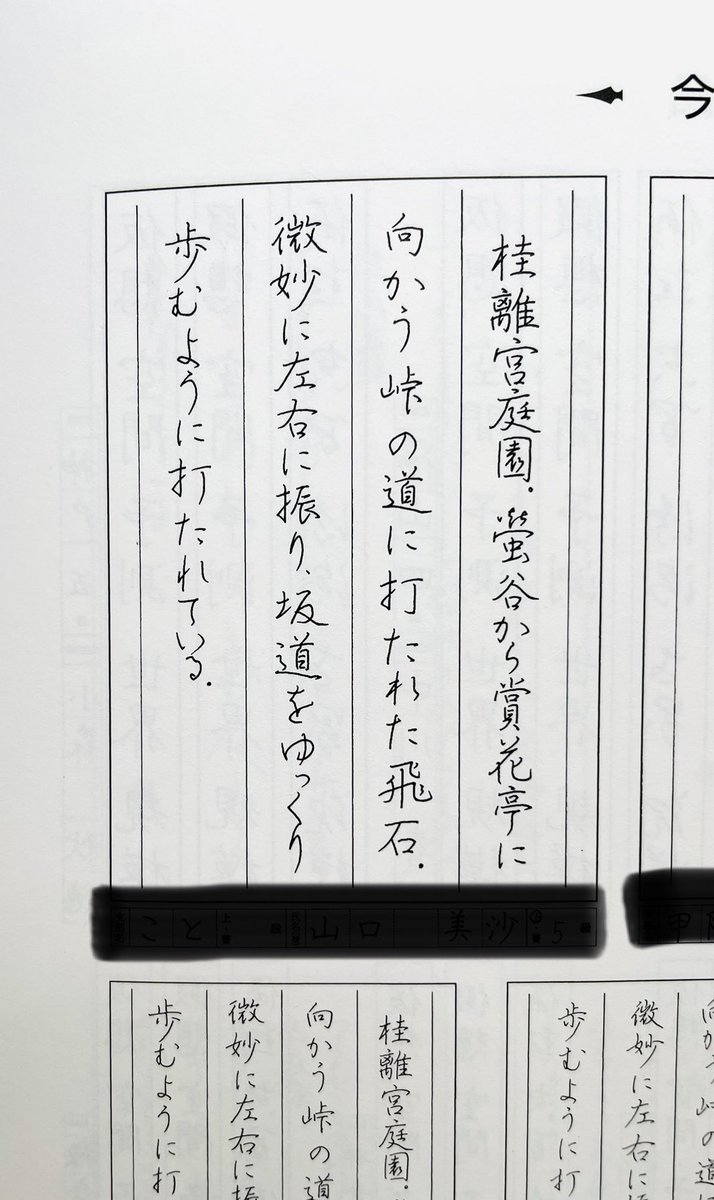 今
桂離宮庭園。螢谷から賞花亭に
向かう峠の道に打たれた飛石。
微妙に左右に振り、坂道をゆっくり
歩むように打たれている。
微妙に左右に
歩むように打
桂離宮庭園。
向かう峠の道
微妙に左右に振
歩むように打